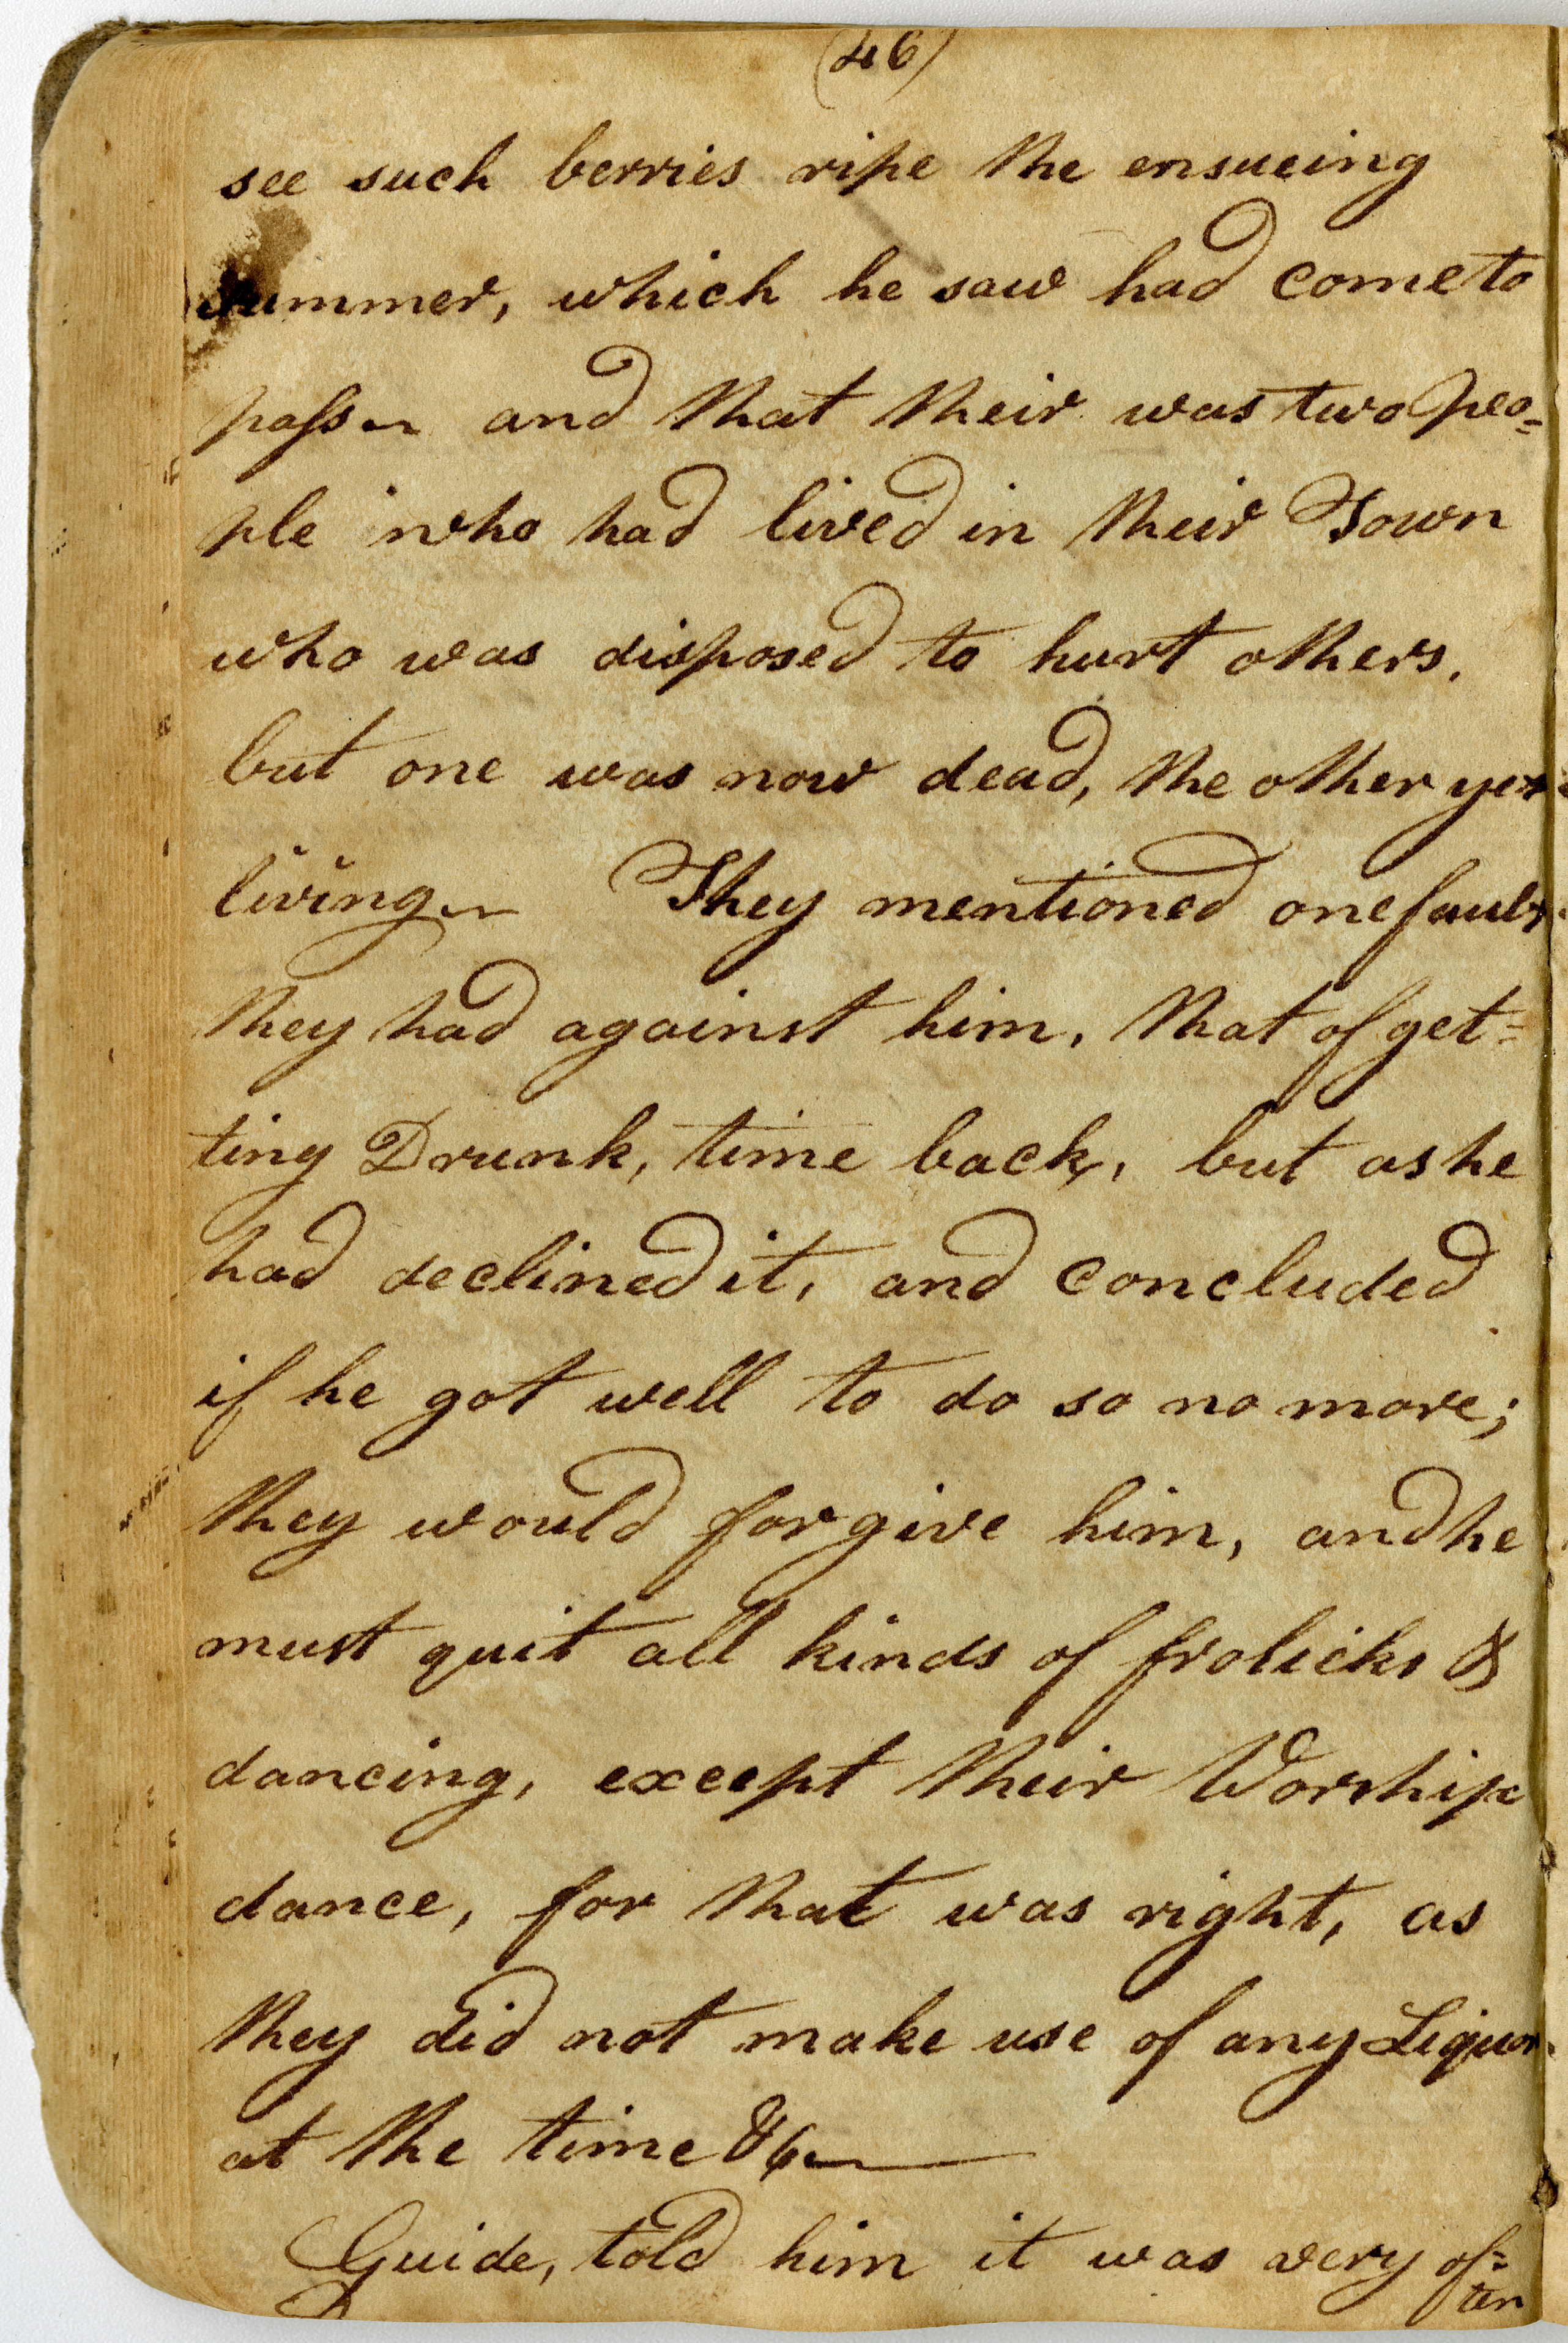 (46)
see such berries ripe the ensueing
summer, which he saw had come to
pass and that their was two peo=
ple who had lived in their Town
who was disposed to hurt others,
but one was now dead, the other yet
living They mentioned one fault
they had against him, that of get=
ting Drunk, time back, but as he
had declined it, and concluded
if he got well to do so no more;
they would forgive him, and he
must quit all kinds of frolicks &
dancing, except their Worship
dance, for that was right, as
they did not make use of any Liquor
at the time &c
Guide, told him it was very of=
ten